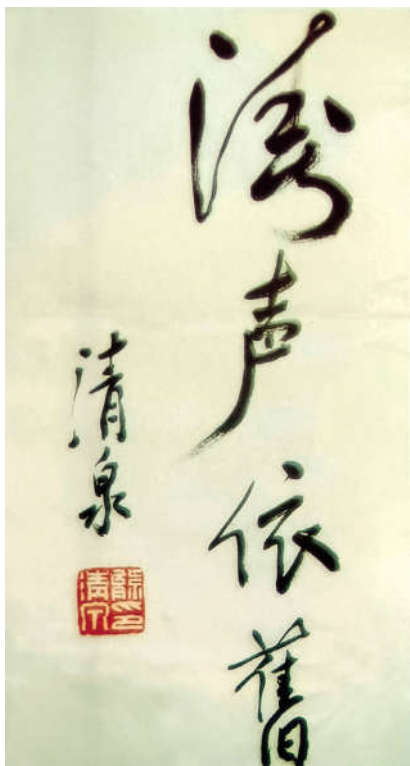 涛声依舊
清泉